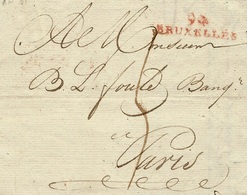 94
BRUXELLES
A Monsieur
B. L. fould Banq.^r
a
Paris